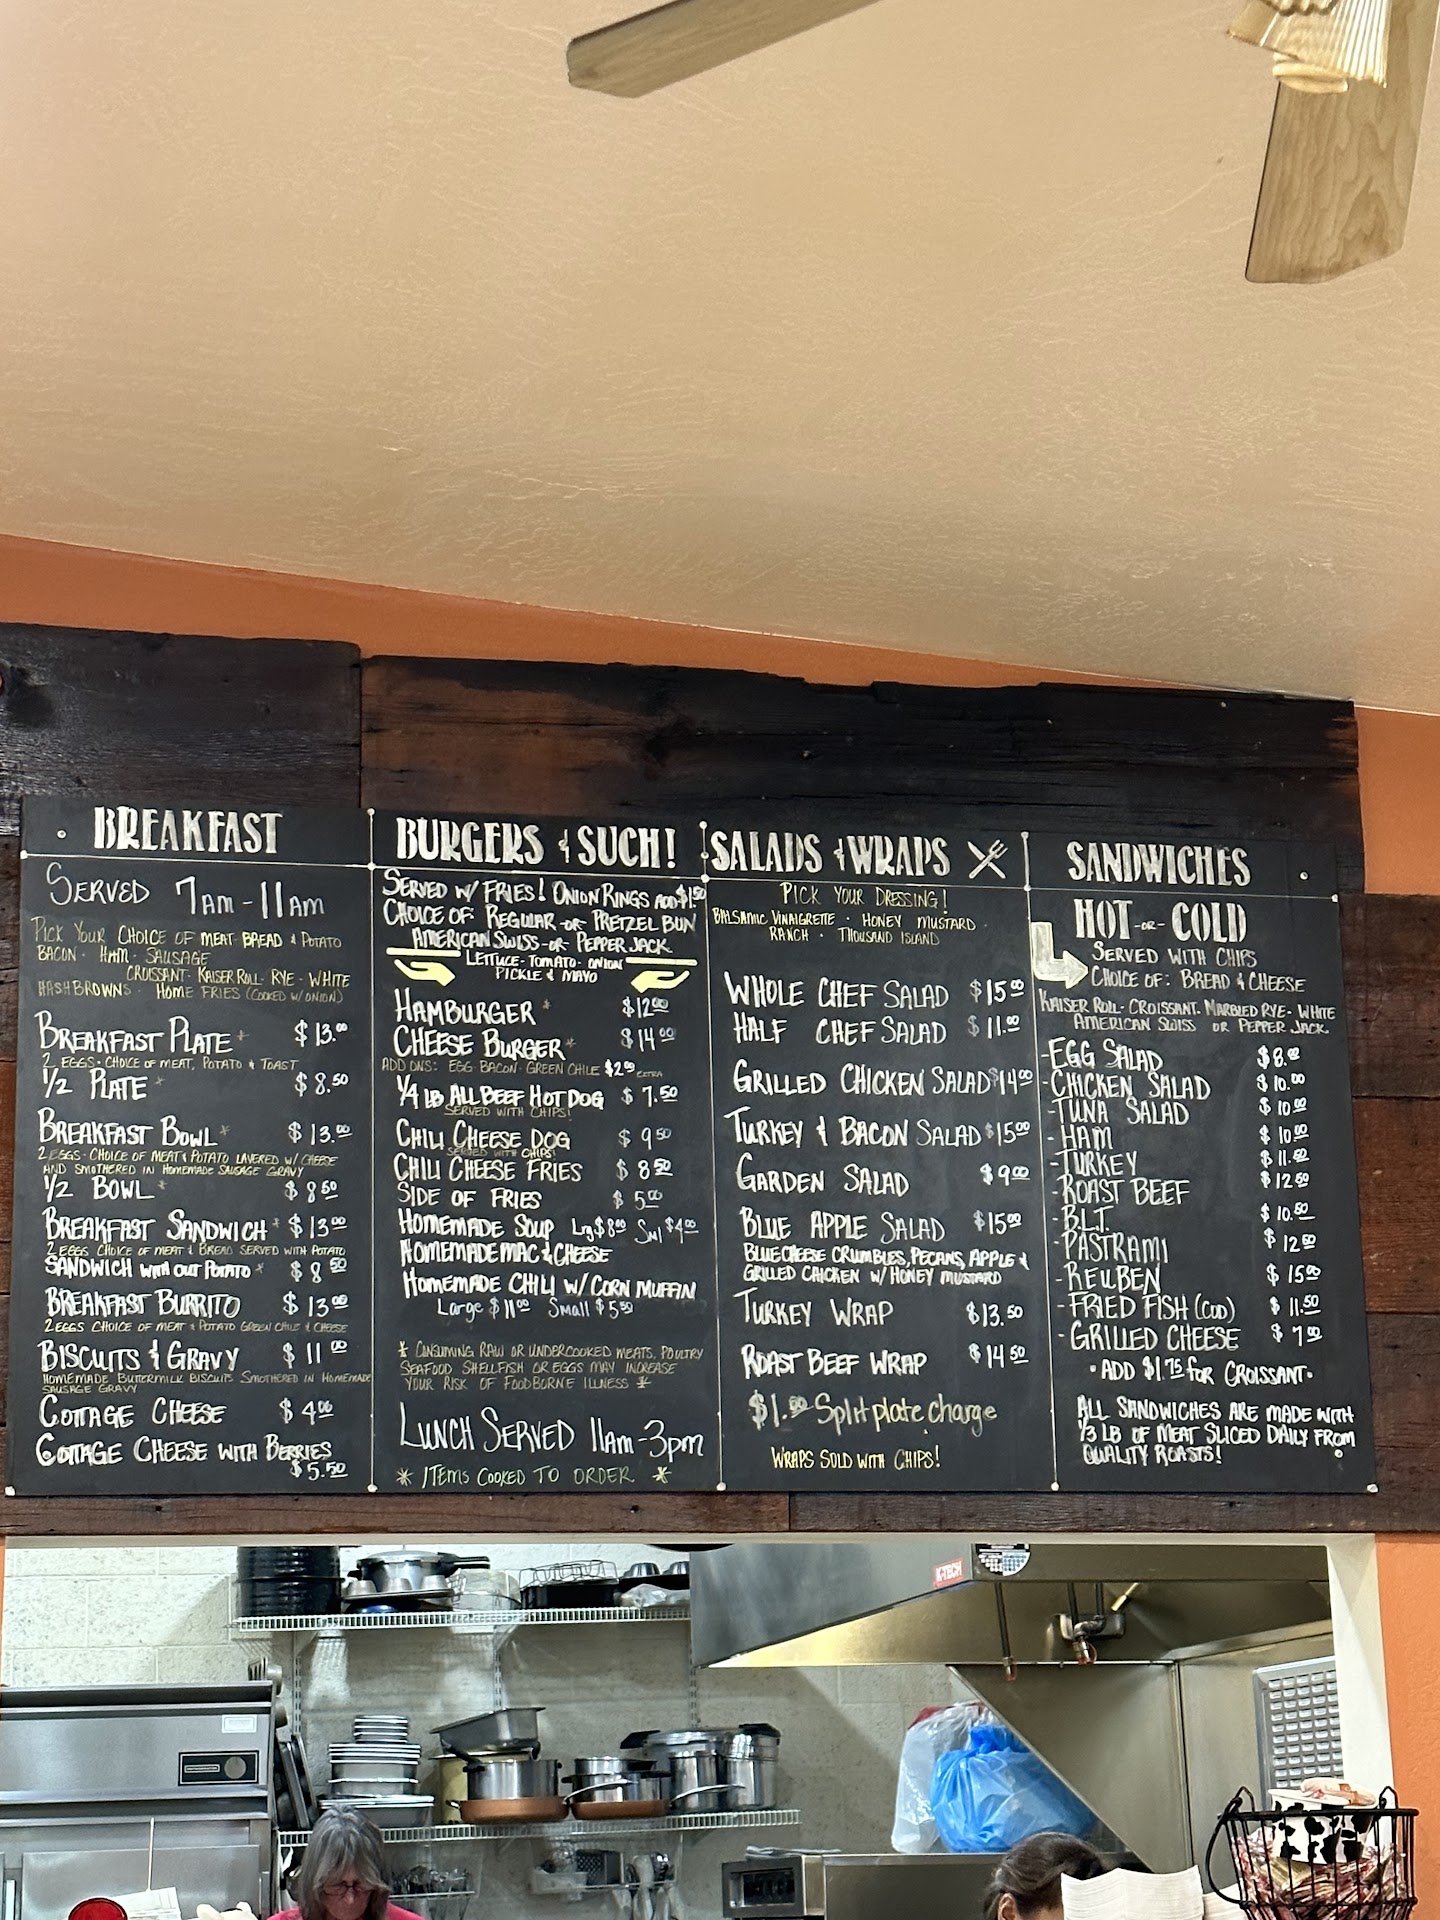 BREAKFAST
SERVED 7AM - 11AM
PICK YOUR CHOICE OF MEAT · BREAD & POTATO
BACON · HAM · SAUSAGE
CROISSANT · KAISER ROLL · RYE · WHITE
HASHBROWNS · HOME FRIES (COOKED W/ONION)
BREAKFAST PLATE * $13.00
2 EGGS · CHOICE OF MEAT, POTATO & TOAST
1/2 PLATE * $8.50
BREAKFAST BOWL * $13.00
2 EGGS · CHOICE OF MEAT & POTATO LAYERED W/ CHEESE
AND SMOTHERED IN HOMEMADE SAUSAGE GRAVY
1/2 BOWL * $8.50
BREAKFAST SANDWICH * $13.00
2 EGGS CHOICE OF MEAT & BREAD SERVED WITH POTATO
SANDWICH WITH OUT POTATO * $8.50
BREAKFAST BURRITO $13.00
2 EGGS CHOICE OF MEAT & POTATO GREEN CHILE & CHEESE
BISCUITS & GRAVY $11.00
HOMEMADE BUTTERMILK BISCUITS SMOTHERED IN HOMEMADE
SAUSAGE GRAVY
COTTAGE CHEESE $4.00
COTTAGE CHEESE WITH BERRIES
$5.50
BURGERS & SUCH!
SERVED W/ FRIES! ONION RINGS ADD $1.50
CHOICE OF: REGULAR -OR- PRETZEL BUN
AMERICAN SWISS -OR- PEPPER JACK
LETTUCE · TOMATO · ONION
PICKLE & MAYO
HAMBURGER * $12.00
CHEESE BURGER * $14.00
ADD ONS: EGG BACON · GREEN CHILE $2.00 EXTRA
1/4 LB ALL BEEF HOT DOG $7.50
SERVED WITH CHIPS!
CHILI CHEESE DOG $9.50
SERVED WITH CHIPS!
CHILI CHEESE FRIES $8.50
SIDE OF FRIES $5.00
HOMEMADE SOUP Lrg $8.00 Sml $4.00
HOMEMADE MAC & CHEESE
HOMEMADE CHILI W/ CORN MUFFIN
Large $11.00 Small $5.50
* CONSUMING RAW OR UNDERCOOKED MEATS, POULTRY
SEAFOOD SHELLFISH OR EGGS MAY INCREASE
YOUR RISK OF FOODBORNE ILLNESS *
LUNCH SERVED 11am - 3pm
* ITEMS COOKED TO ORDER *
SALADS & WRAPS
PICK YOUR DRESSING!
BALSAMIC VINAIGRETTE · HONEY MUSTARD
RANCH · THOUSAND ISLAND
WHOLE CHEF SALAD $15.00
HALF CHEF SALAD $11.00
GRILLED CHICKEN SALAD $14.00
TURKEY & BACON SALAD $15.00
GARDEN SALAD $9.00
BLUE APPLE SALAD $15.00
BLUE CHEESE CRUMBLES, PECANS, APPLE &
GRILLED CHICKEN W/ HONEY MUSTARD
TURKEY WRAP $13.50
ROAST BEEF WRAP $14.50
$1.00 Split plate charge
WRAPS SOLD WITH CHIPS!
SANDWICHES
HOT -OR- COLD
SERVED WITH CHIPS
CHOICE OF: BREAD & CHEESE
KAISER ROLL · CROISSANT · MARBLED RYE · WHITE
AMERICAN SWISS OR PEPPER JACK
- EGG SALAD $8.00
- CHICKEN SALAD $10.00
- TUNA SALAD $10.00
- HAM $10.00
- TURKEY $11.50
- ROAST BEEF $12.50
- B.L.T. $10.50
- PASTRAMI $12.50
- REUBEN $15.00
- FRIED FISH (COD) $11.50
- GRILLED CHEESE $7.00
· ADD $1.75 for CROISSANT ·
ALL SANDWICHES ARE MADE WITH
1/3 LB OF MEAT SLICED DAILY FROM
QUALITY ROASTS!
K-TECH